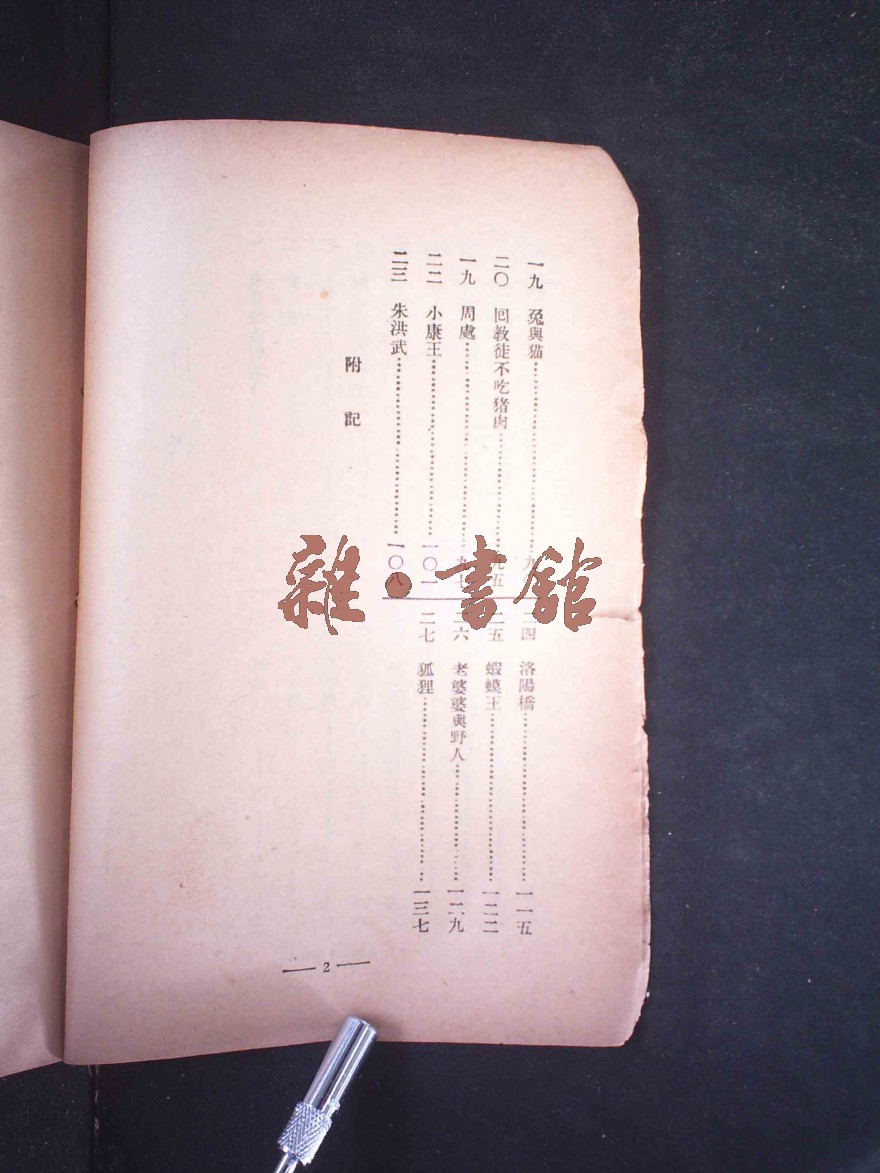 一九 兔與猫……九
二〇 回教徒不吃猪肉……九五
一九 周處……九七
二二 小康王……一〇一
二三 朱洪武……一〇八
附記
二四 洛陽橋……一一五
二五 蝦蟆王……一二二
二六 老婆婆與野人……一二九
二七 狐狸……一三七
— 2 —
雜·書館